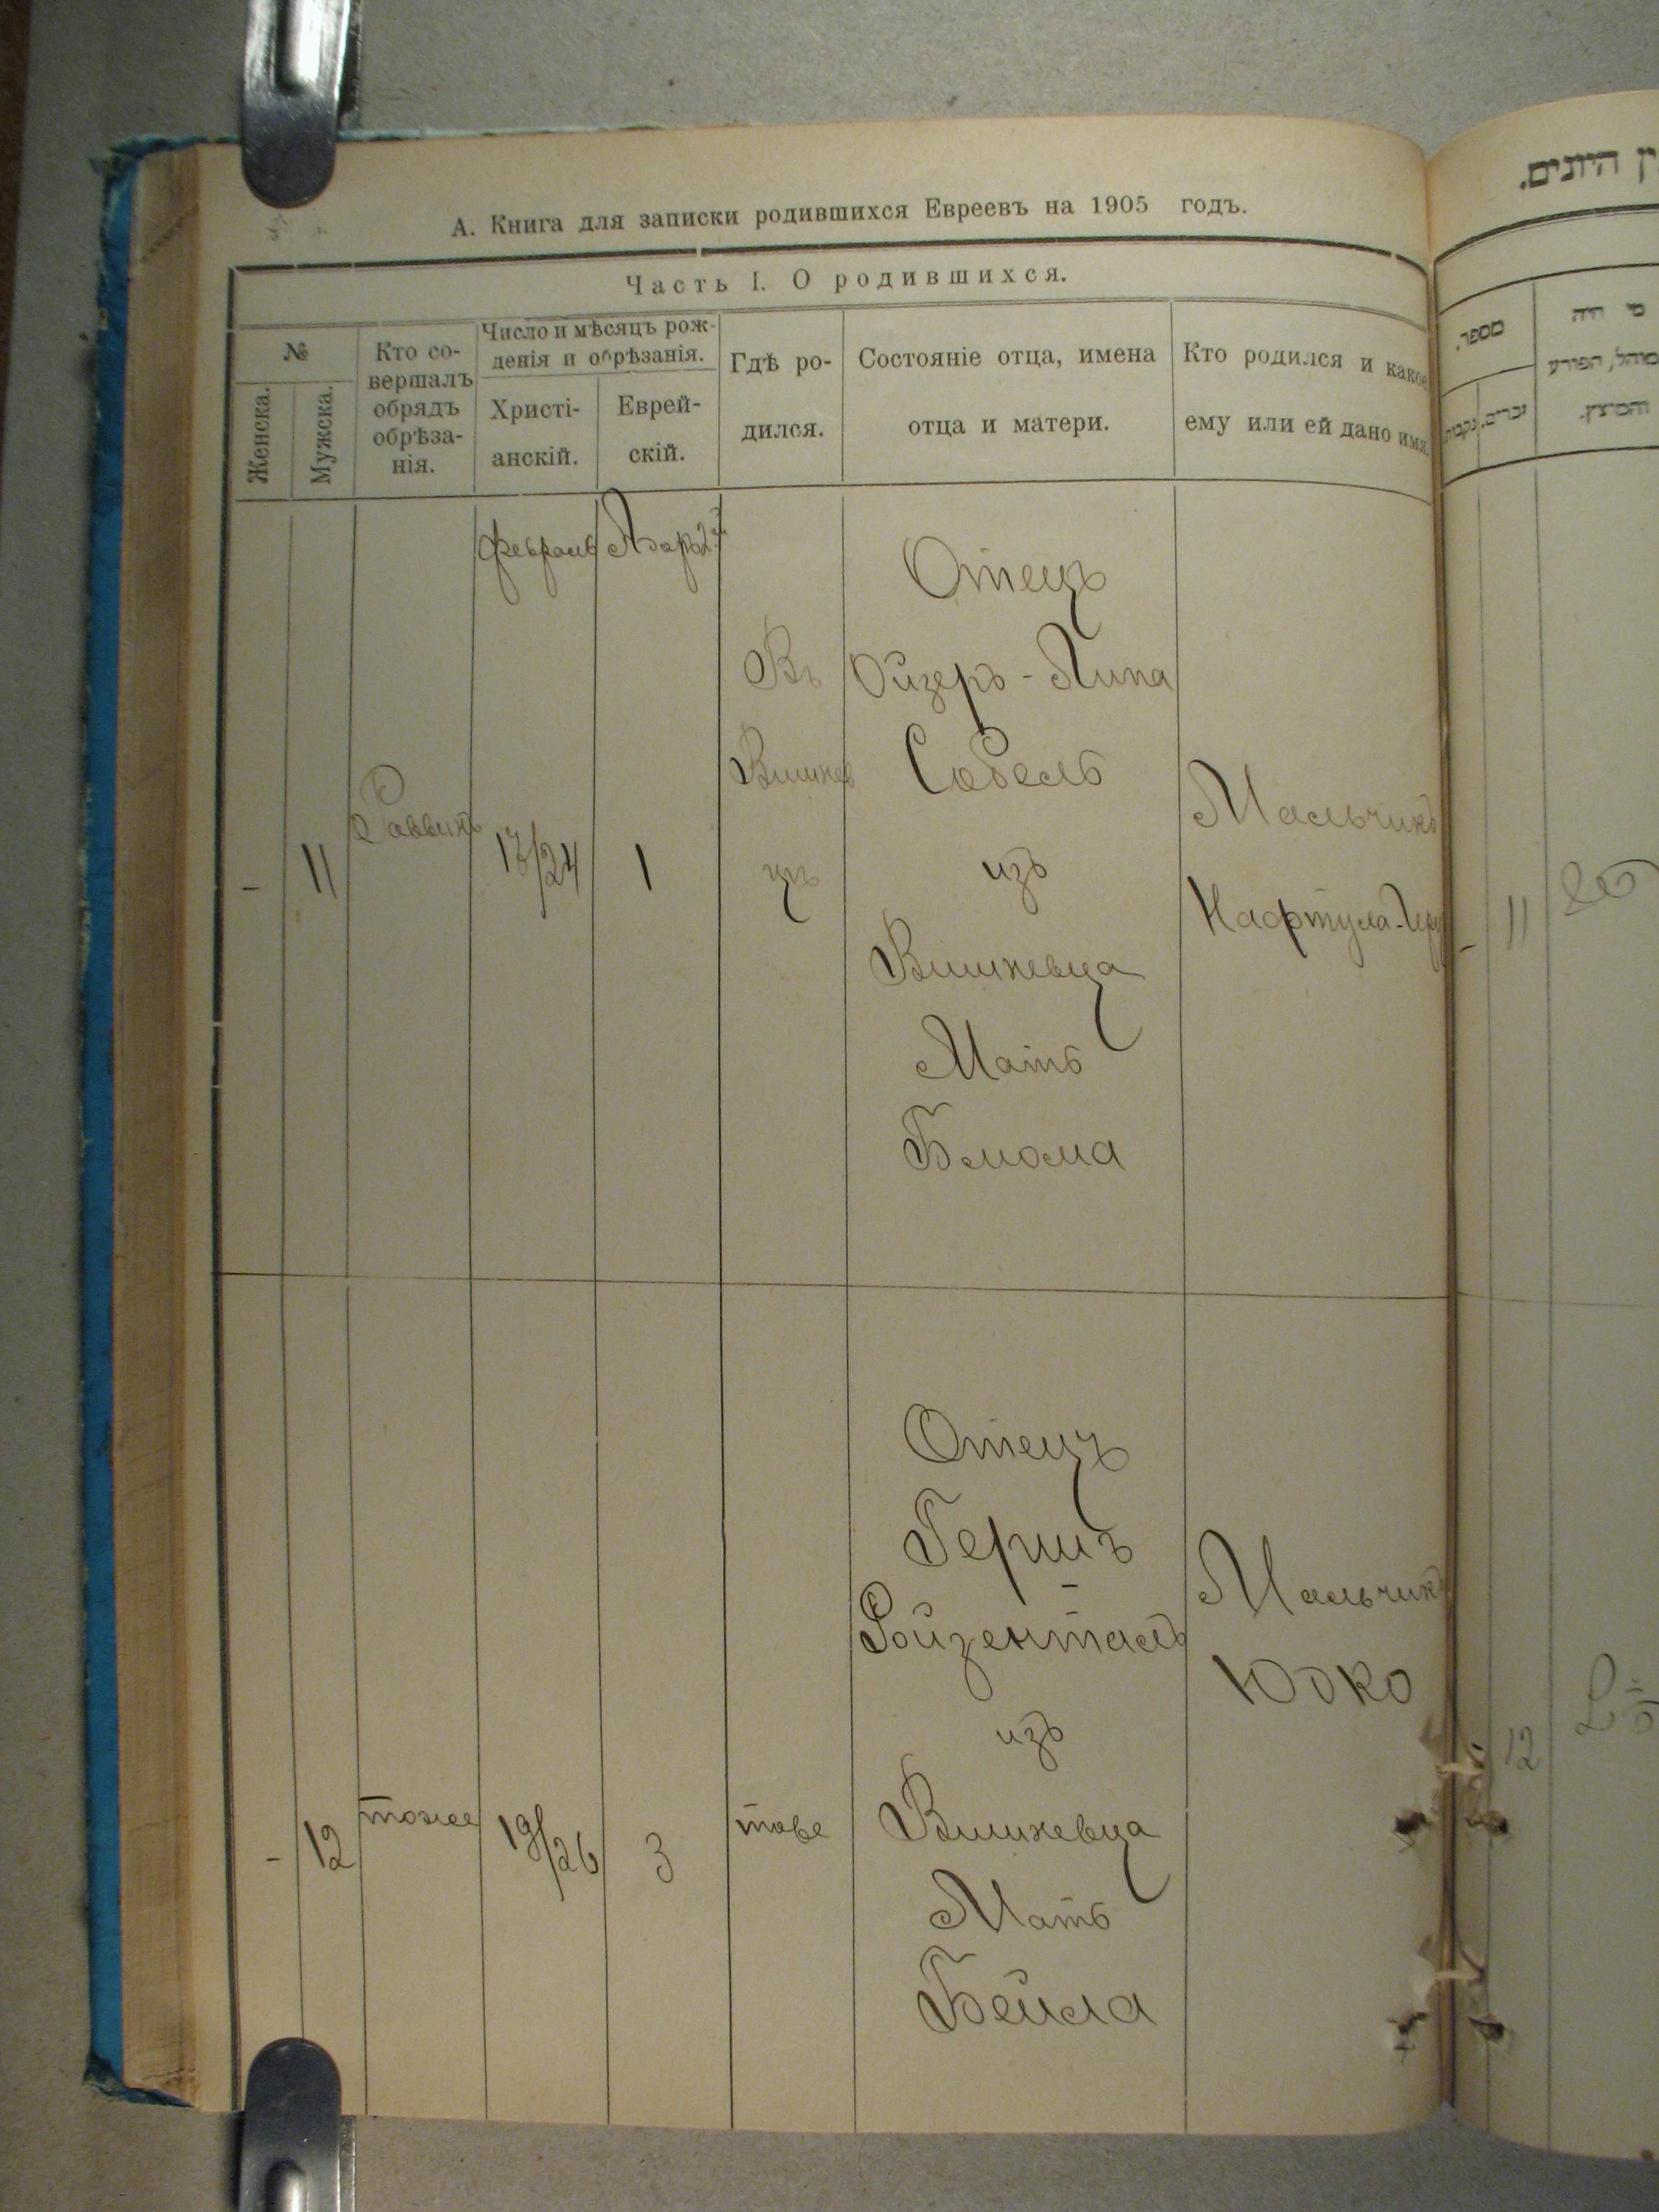 А. Книга для записки родившихся Евреевъ на 1905 годъ.
Часть I. О родившихся.
№
Женска.
Мужска.
Кто со-
вершалъ
обрядъ
обрѣза-
нія.
Число и мѣсяцъ рож-
денія и обрѣзанія.
Христі-
анскій.
Еврей-
скій.
Гдѣ ро-
дился.
Состояніе отца, имена
отца и матери.
Кто родился и какое
ему или ей дано имя.
-
11
Раввинъ
Февраль
/24
Адаръ
1
Въ
Вишнев
цѣ
Отецъ
Ойзеръ-Липа
Собель
изъ
Вишневца
Мать
Блюма
Мальчикъ
Нафтула-
-
12
тоже
19/26
3
Отецъ
Гершъ
-
Ройзенталь
изъ
Вишневца
Мать
Бейла
Мальчикъ
Юдко
היונים.
מספר.
זכרים.
נקבות.
מי היה
המוהל, הפורע
והמוצץ.
-
11
12